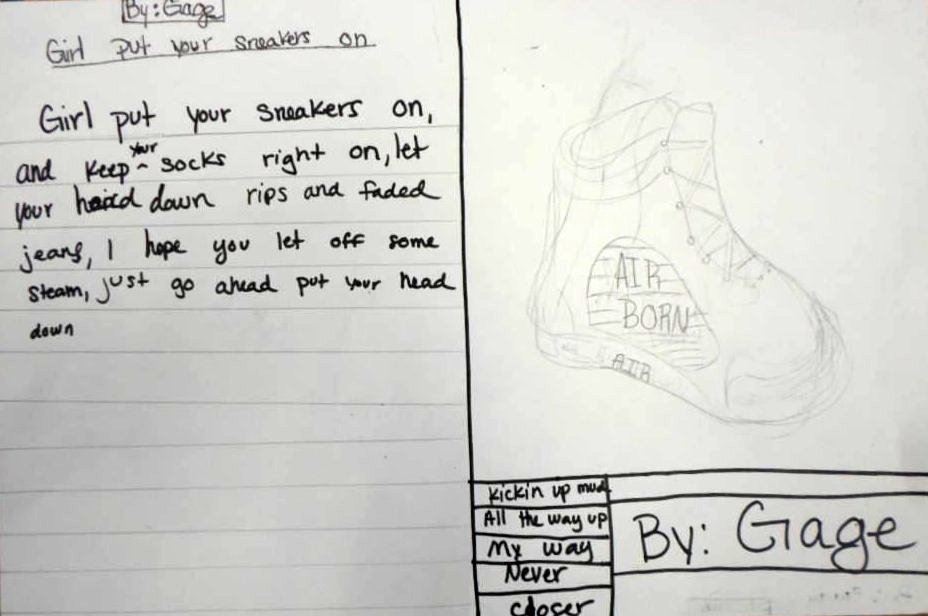 By: Gage
Girl put your sneakers on
Girl put your sneakers on,
and keep your socks right on, let
your down rips and faded
jeans, I hope you let off some
steam, just go ahead put your head
down
AIR
BORN
AIR
Kickin up mud
All the way up
My way
Never
closer
By: Gage